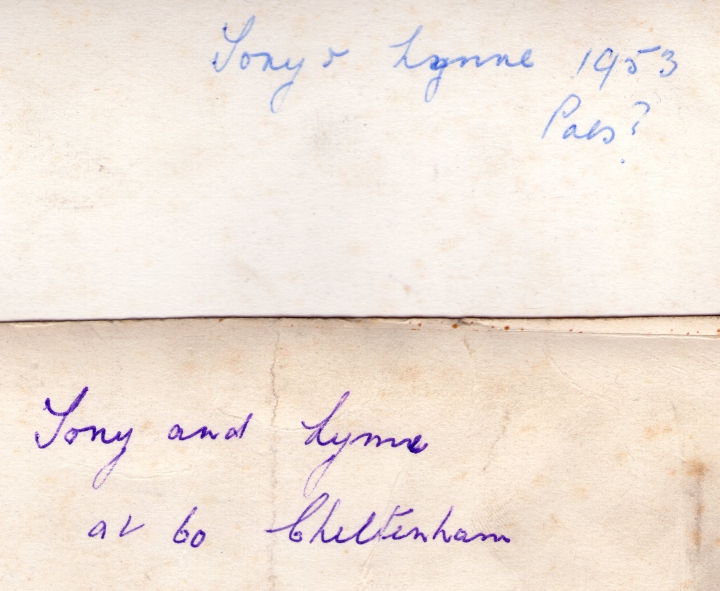 Tony & Lynne 1953
Pals?
Tony and Lynne
at 60 Cheltenham